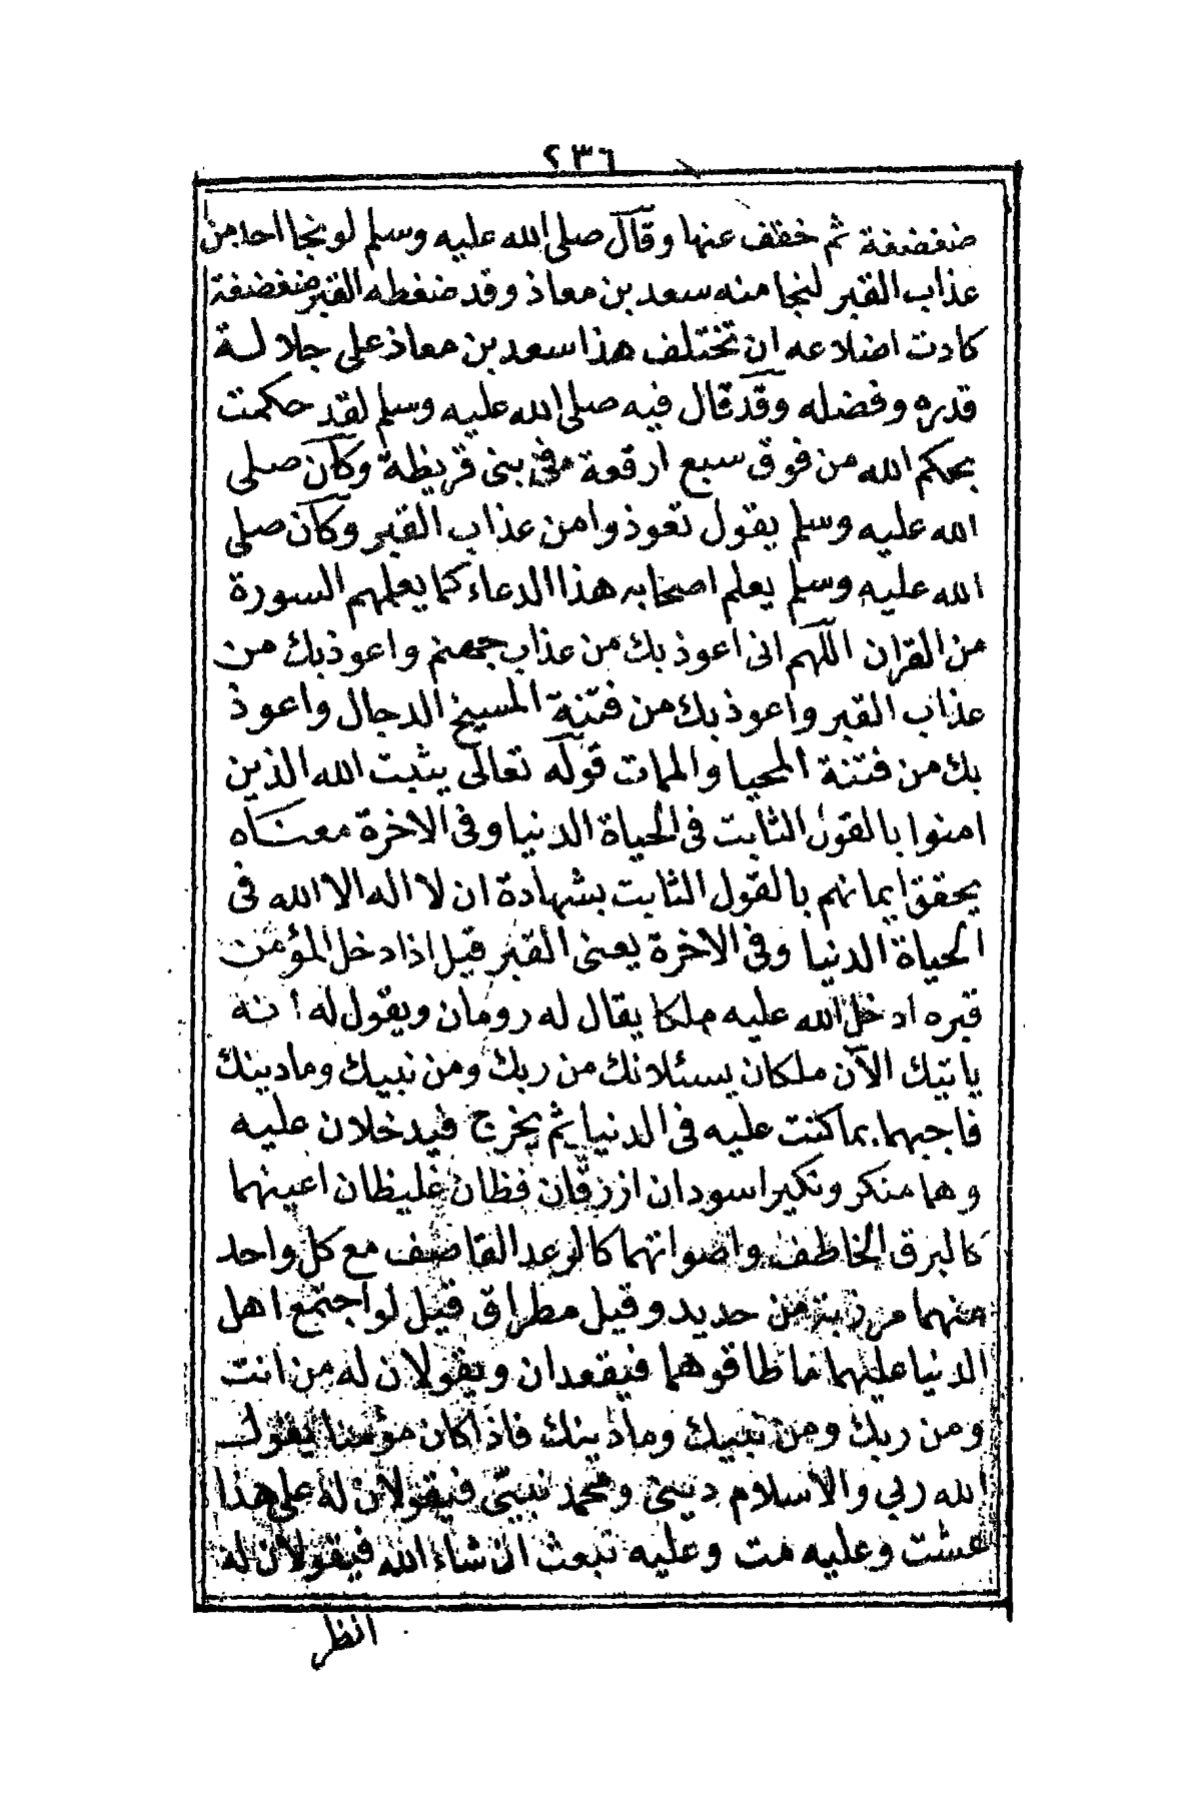 ٢٣٦
ضغضغة ثم خفف عنها وقال صلى الله عليه وسلم لو نجا احد من
عذاب القبر لنجا منه سعد بن معاذ وقد ضغطه القبر ضغضغة
كادت اضلاعه ان تختلف هذا سعد بن معاذ على جلالة
قدره وفضله وقد قال فيه صلى الله عليه وسلم لقد حكمت
بحكم الله من فوق سبع ارقعة في بنى قريظة وكان صلى
الله عليه وسلم يقول تعوذوا من عذاب القبر وكان صلى
الله عليه وسلم يعلم اصحابه هذا الدعاء كما يعلمهم السورة
من القران اللهم انى اعوذ بك من عذاب جهنم واعوذ بك من
عذاب القبر واعوذ بك من فتنة المسيخ الدجال واعوذ
بك من فتنة المحيا والممات قوله تعالى يثبت الله الذين
امنوا بالقول الثابت فى الحياة الدنيا وفى الاخرة معناه
يحقق ايمانهم بالقول الثابت بشهادة ان لا اله الا الله فى
الحياة الدنيا وفى الاخرة يعنى القبر قيل اذا دخل المؤمن
قبره ادخل الله عليه ملكا يقال له رومان ويقول له انه
ياتيك الآن ملكان يسئلانك من ربك ومن نبيك ومادينك
فاجبهما بما كنت عليه فى الدنيا ثم يخرج فيدخلان عليه
وهما منكر ونكير اسودان ازرقان فظان غليظان اعينهما
كالبرق الخاطف واصواتهما كالرعد القاصف مع كل واحد
منهما مرزبة من حديد وقيل مطراق قيل لو اجتمع اهل
الدنيا عليهما ما طاقوهما فيقعدان ويقولان له من انت
ومن ربك ومن نبيك ومادينك فاذا كان مؤمنا يقول
الله ربي والاسلام دينى ومحمد نبيّى فيقولان له على هذا
عشت وعليه مت وعليه تبعث ان شاء الله فيقولان له
انظر